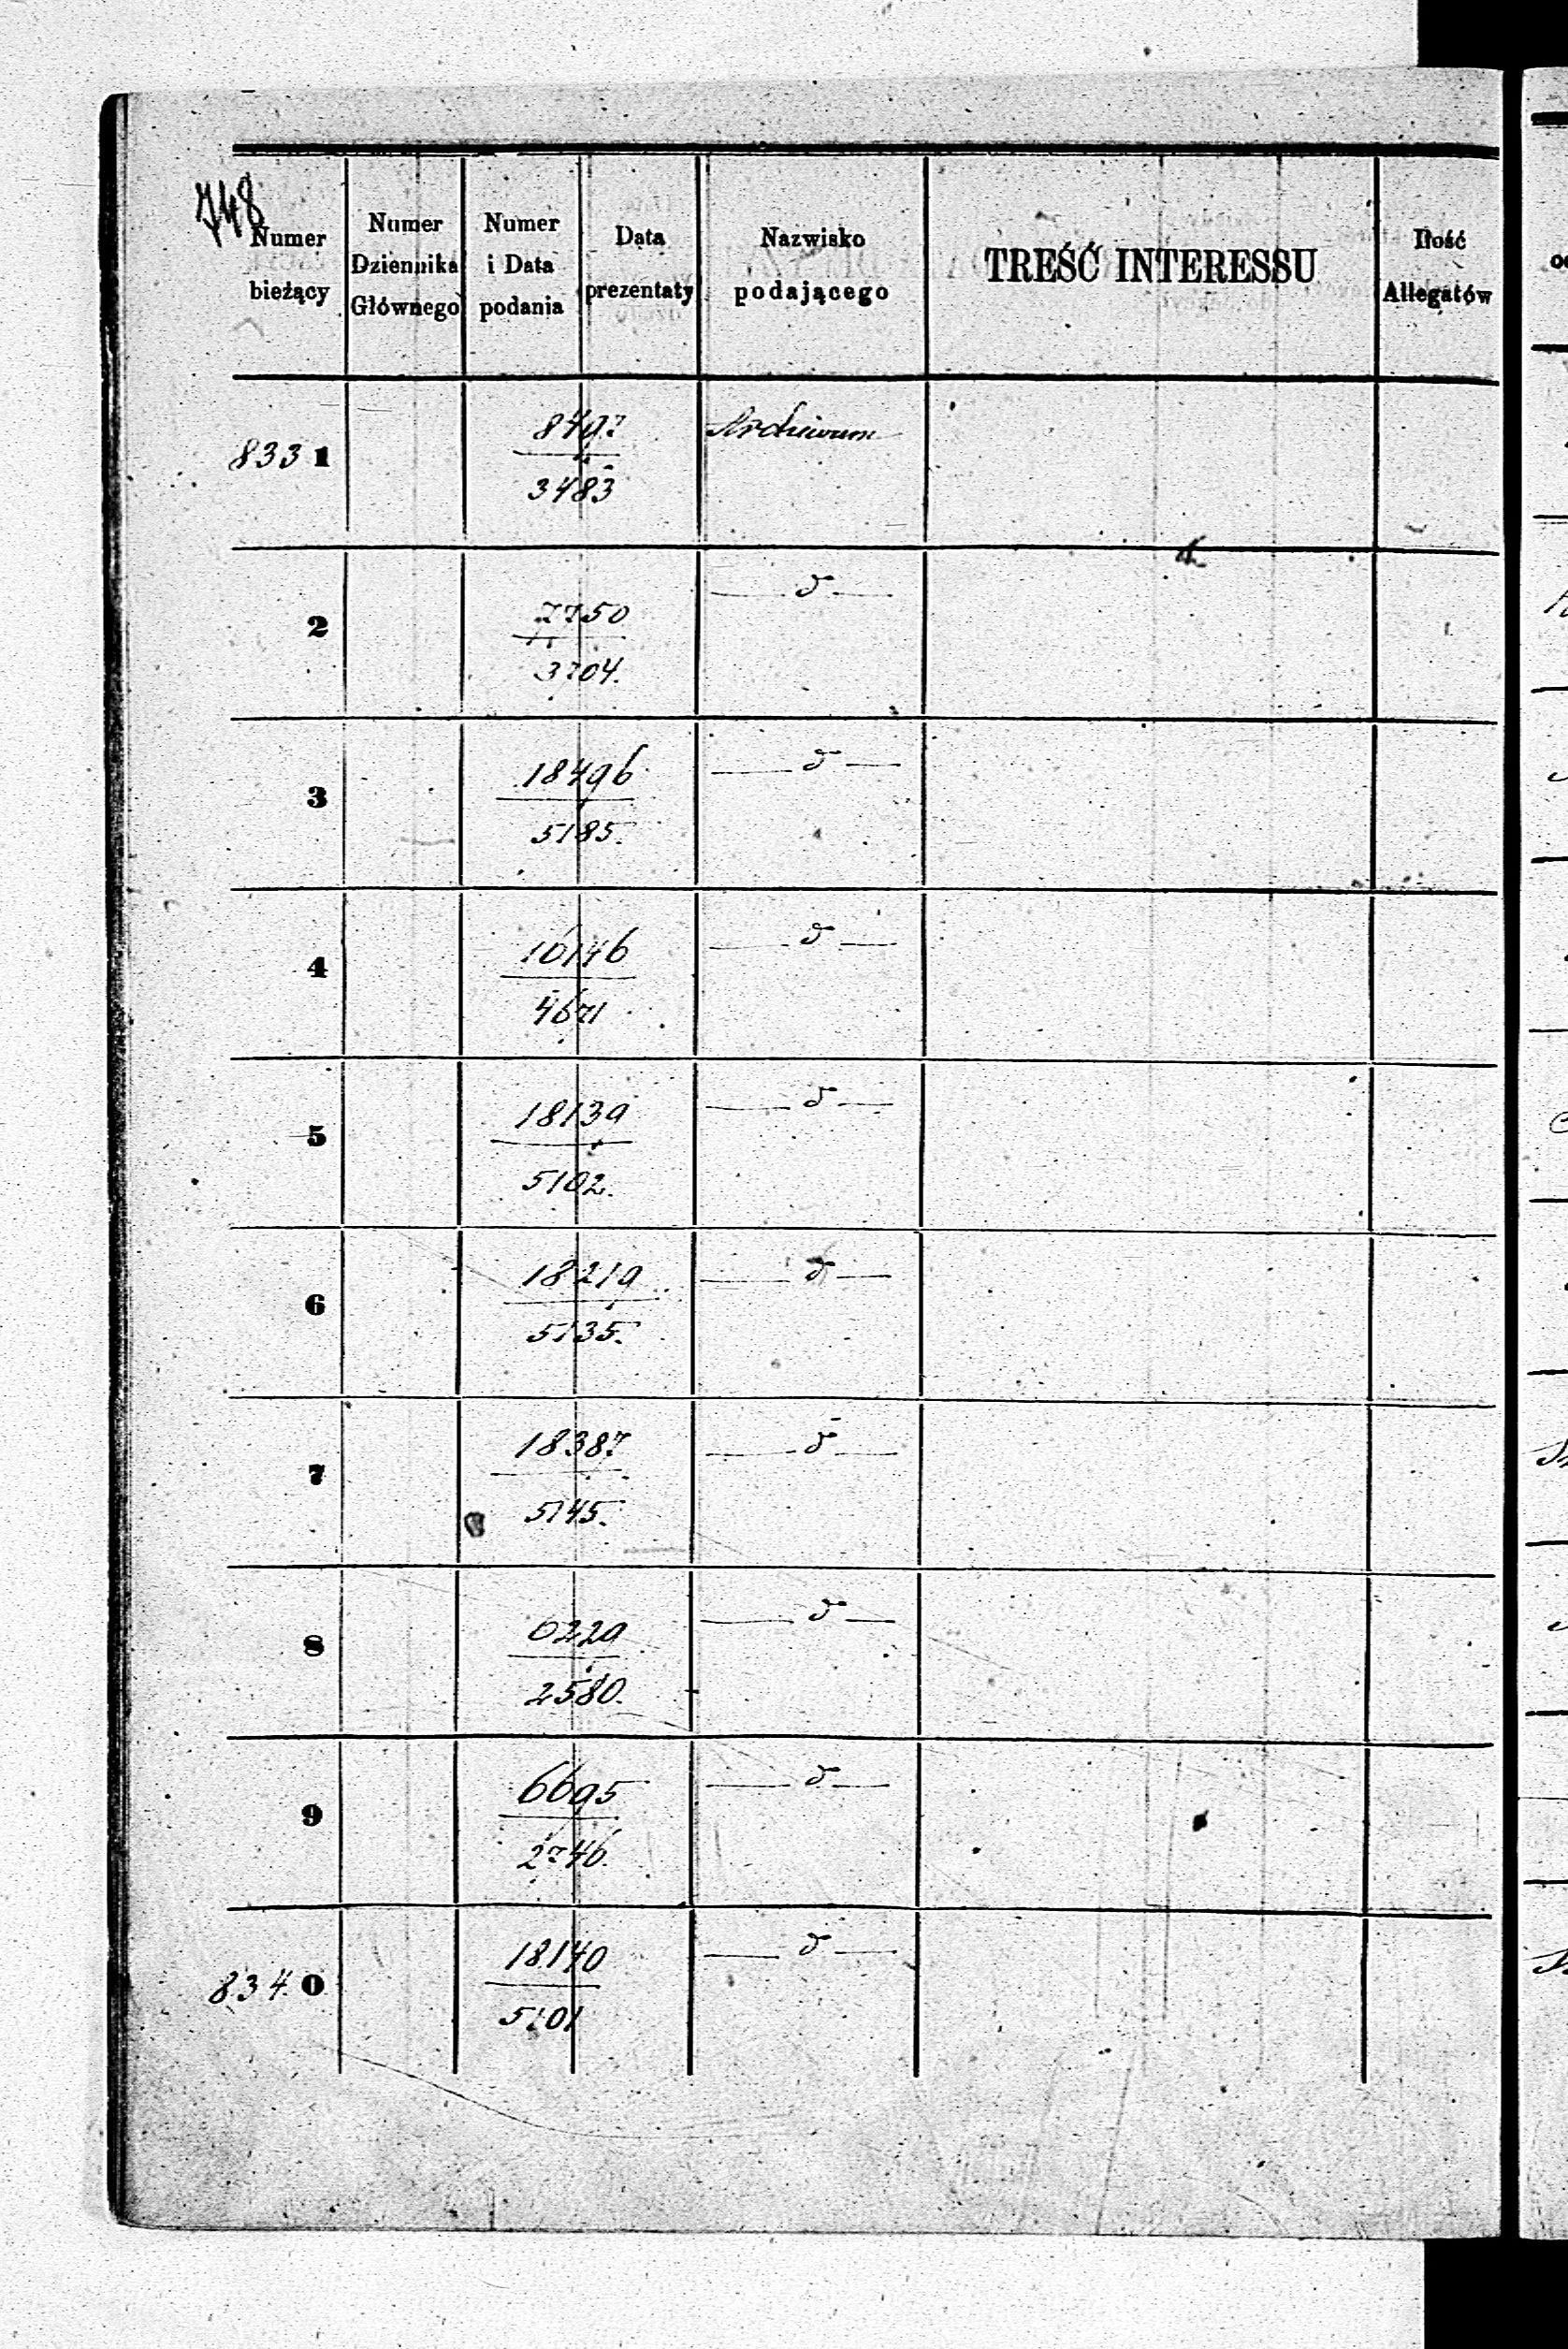 748
Numer bieżący
Numer Dziennika Głównego
Numer i Data podania
Data prezentaty
Nazwisko podającego
TREŚĆ INTERESSU
Ilość Allegatów
8331
8497
3483
Archiwum
2
7750
3704.
— d —
3
18496
5185.
— d —
4
16146
4671
— d —
5
18139
5102.
— d —
6
18219
5135.
— d —
7
18387
5145.
— d —
8
2580.
— d —
9
6695
2746.
— d —
8340
18140
5101
— d —